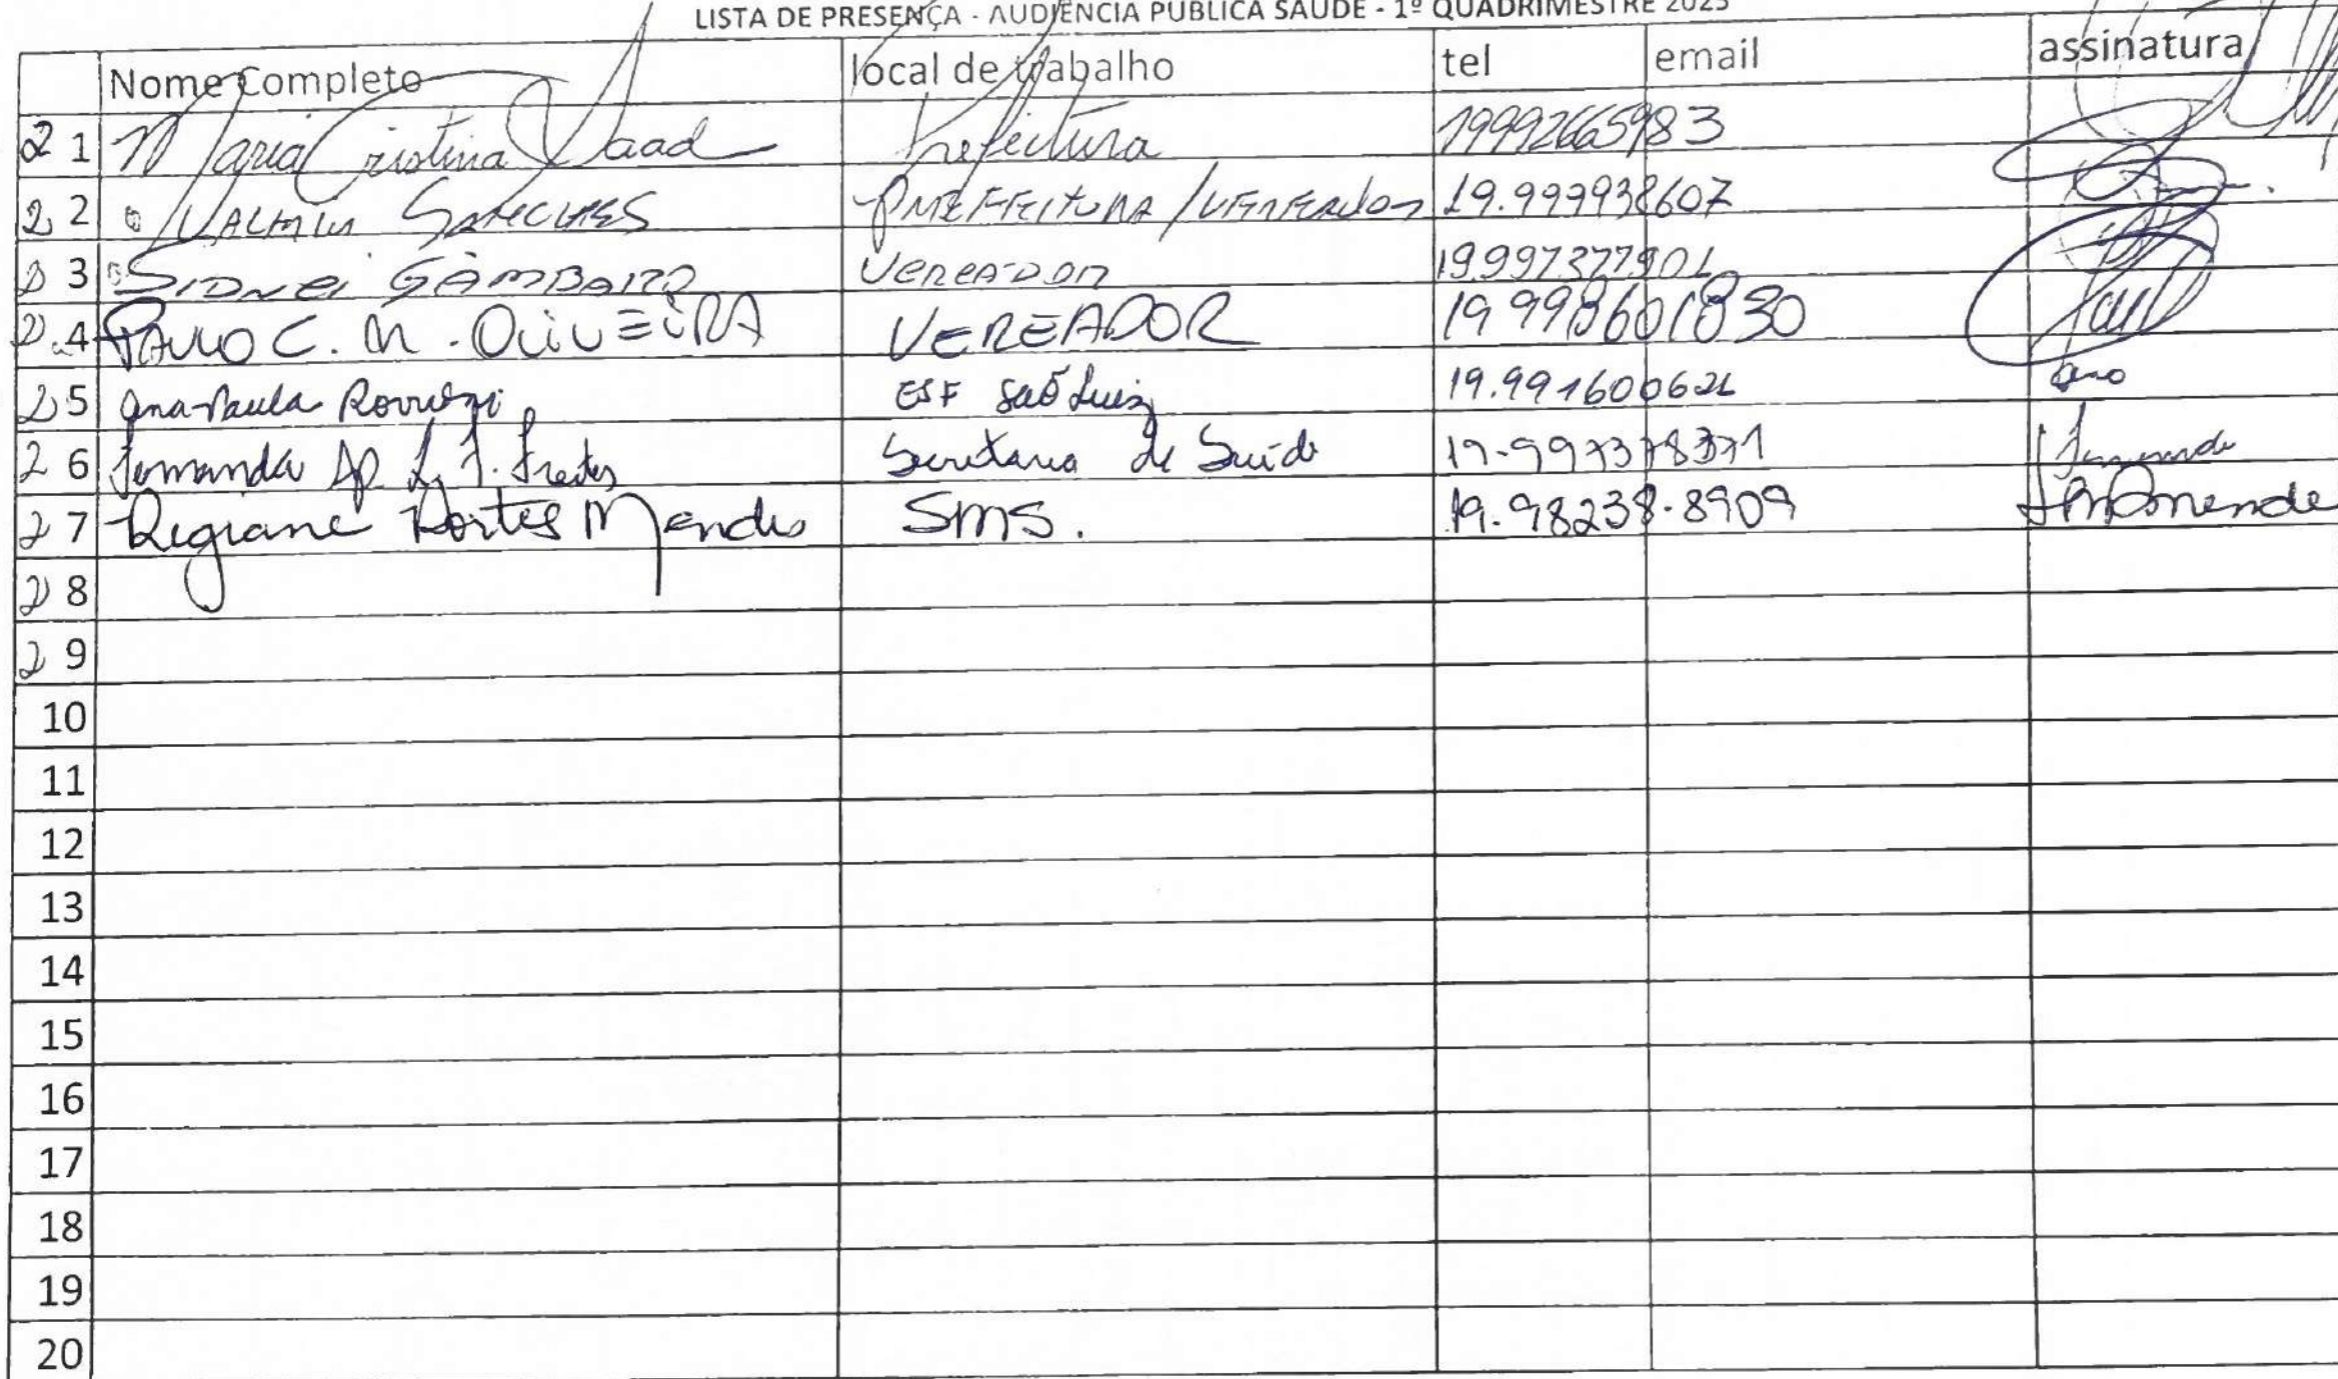 LISTA DE PRESENÇA - AUDIÊNCIA PÚBLICA SAÚDE - 1º QUADRIMESTRE 2025
Nome Completo local de trabalho tel email assinatura
21 Maria Cristina Saad Prefeitura 19992665983
22 VALMIR PREFEITURA / VEREADOR 19.999938607
23 SIDNEI GAMBARO VEREADOR 19.997377901
24 PAULO C. M. OLIVEIRA VEREADOR 19 998601830
25 Ana Paula ESF São Luiz 19.991600621 Ana
26 Fernanda Ap. L. J. Freitas Secretaria de Saúde 19-997378371 Fernanda
27 Regiane Portes Mendes SMS. 19.98238-8909
28
29
10
11
12
13
14
15
16
17
18
19
20